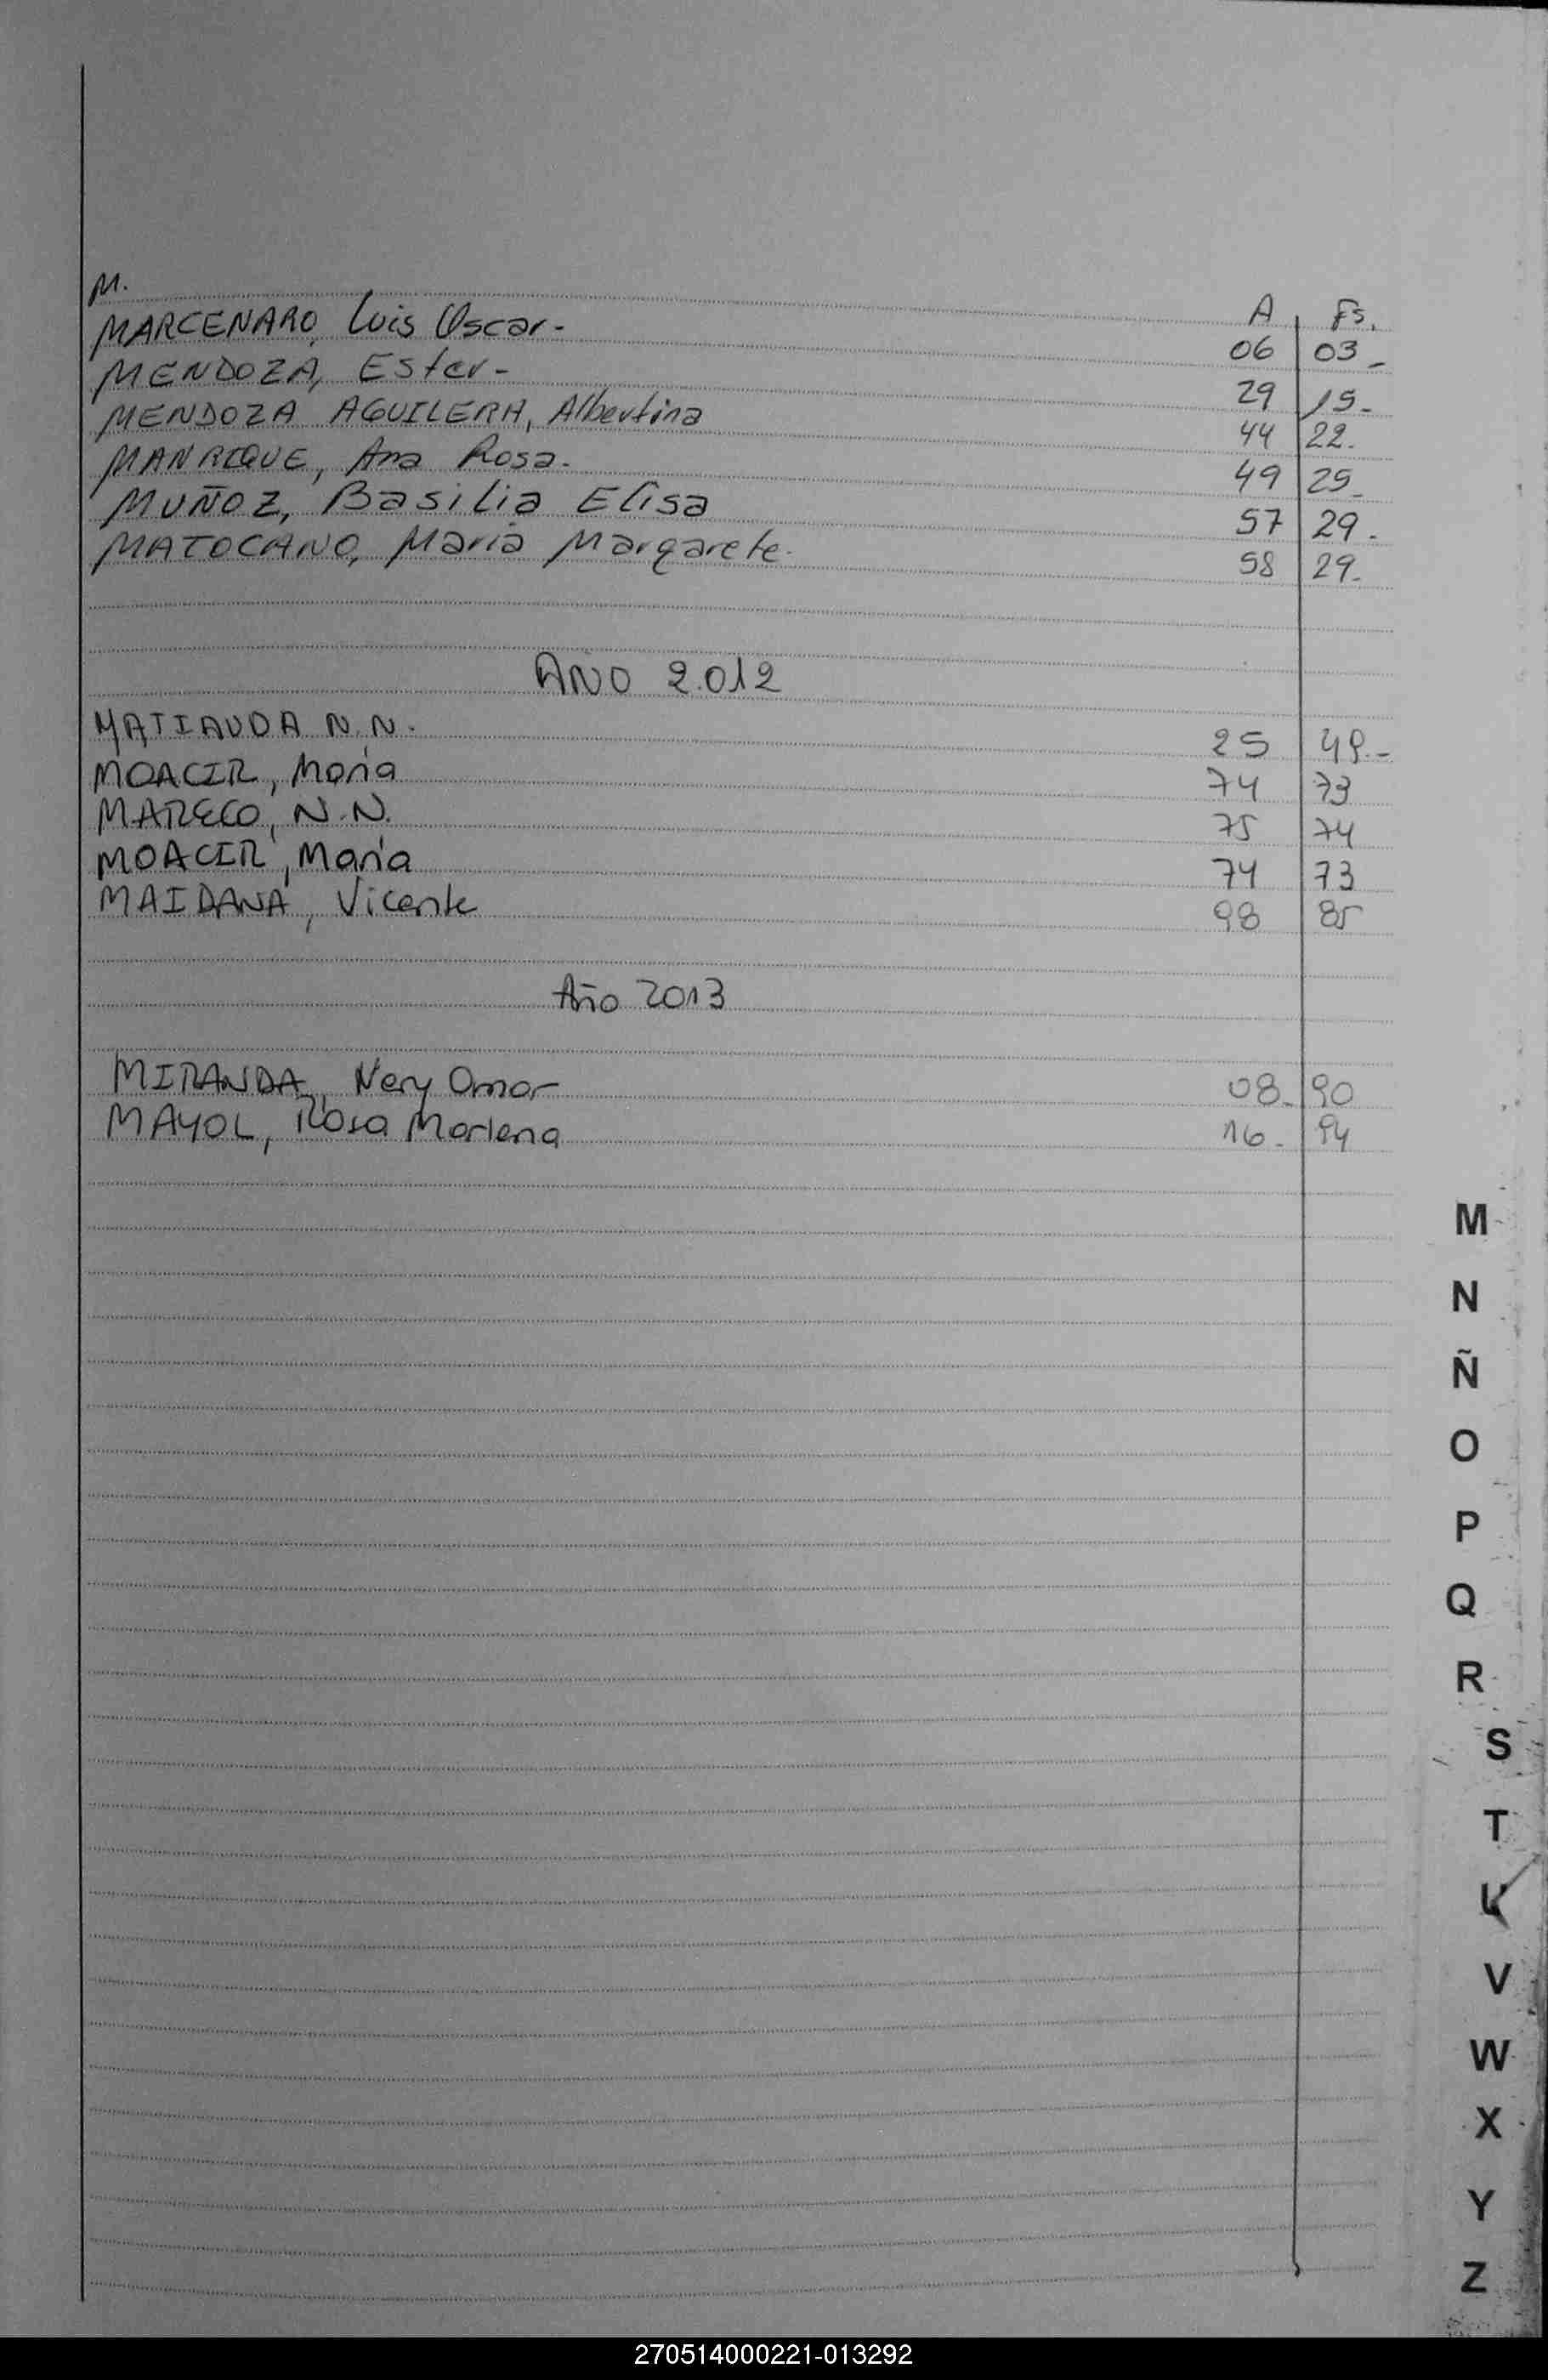 M. A Fs.
MARCENARO, Luis Oscar- 06 03-
MENDOZA, Ester- 29 15-
MENDOZA AGUILERA, Albertina 44 22.
MANRIQUE, Ana Rosa. 49 25-
MUÑOZ, Basilia Elisa 57 29.
MATOCANO, Maria Margarete. 58 29.
AÑO 2.012
MATIAUDA N.N. 25 49.-
MOACIR, Maria 74 73
MARECO, N.N. 75 74
MOACIR, Maria 74 73
MAIDANA, Vicente 98 85
Año 2013
MIRANDA, Nery Omar 08- 90
MAYOL, Rosa Marlena 16- 94
M
N
Ñ
O
P
Q
R
S
T
V
W
X
Y
Z
270514000221-013292